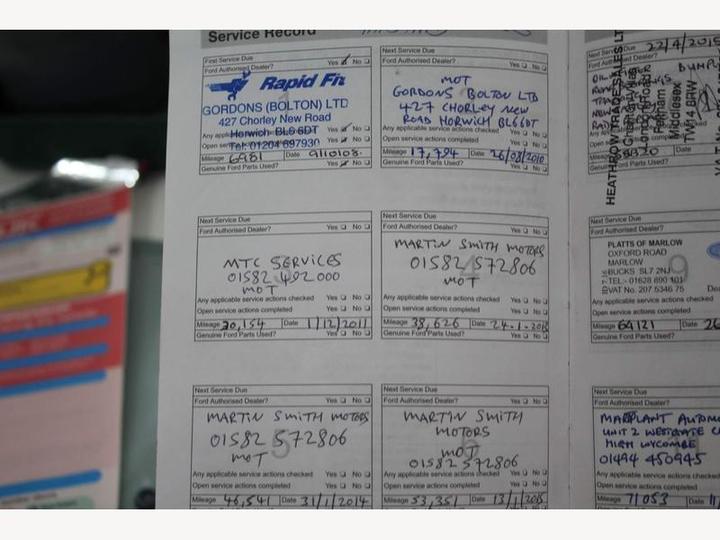 Service Record
First Service Due
Ford Authorised Dealer? Yes No
Rapid Fit
GORDONS (BOLTON) LTD
427 Chorley New Road
Horwich BL6 6DT
Tel: 01204 697930
Mileage 6981 Date 9110108
Genuine Ford Parts Used? Yes No
Next Service Due
Ford Authorised Dealer? Yes No
MOT
GORDONS BOLTON LTD
427 CHORLEY NEW
ROAD HORWICH BL66DT
Any applicable service actions checked Yes No
Open service actions completed Yes No
Mileage 17,794 Date 26/08/2010
Genuine Ford Parts Used? Yes No
Next Service Due
Ford Authorised Dealer? Yes No
MTC SERVICES
01582 402000
MOT
Any applicable service actions checked Yes No
Open service actions completed Yes No
Mileage 30,154 Date 1/12/2011
Genuine Ford Parts Used? Yes No
Next Service Due
Ford Authorised Dealer? Yes No
MARTIN SMITH MOTORS
01582 572806
4
MOT
Any applicable service actions checked Yes No
Open service actions completed Yes No
Mileage 38,626 Date 24-1-
Genuine Ford Parts Used? Yes No
Next Service Due
Ford Authorised Dealer? Yes No
MARTIN SMITH MOTORS
01582 572806
5
MOT
Any applicable service actions checked Yes No
Open service actions completed Yes No
Mileage 46,541 Date 31/1/2014
Next Service Due
Ford Authorised Dealer? Yes No
MARTIN SMITH
MOTORS
6
MOT
01582 572806
Any applicable service actions checked Yes No
Open service actions completed Yes No
Mileage 53,351 Date 13/1/2015
Due 22/4/2015
HEATHROW TRADE SALES LT
Feltham
Middlesex
TW14 8RW
Next Service Due
Ford Authorised Dealer?
PLATTS OF MARLOW
OXFORD ROAD
MARLOW
BUCKS SL7 2NJ
TEL:- 01628 890 101
VAT No. 207 5346 75
9
Open service actions completed
Mileage 69121 Date 26
Genuine Ford Parts Used?
Next Service Due
Ford Authorised Dealer?
MARPLANT AUTOM
UNIT 2 WESTGATE C
HIGH WYCOMBE
01494 450945
Any applicable service actions checked
Open service actions completed
Mileage 71053 Date